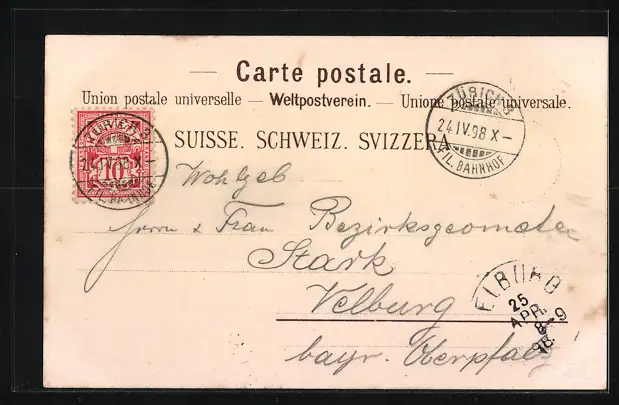 — Carte postale. —
Union postale universelle — Weltpostverein. — Unione postale universale.
SUISSE. SCHWEIZ. SVIZZERA
ZÜRICH 3
24.IV.98 X–
FIL. BAHNHOF
ZÜRICH 3
24.IV.98 X–
FIL. BAHNHOF
10
Wohlgeb
Herrn & Frau Bezirksgeometer
Stark
Velburg
bayr. Oberpfalz
ELBURG
25
APR.
8-9
98.